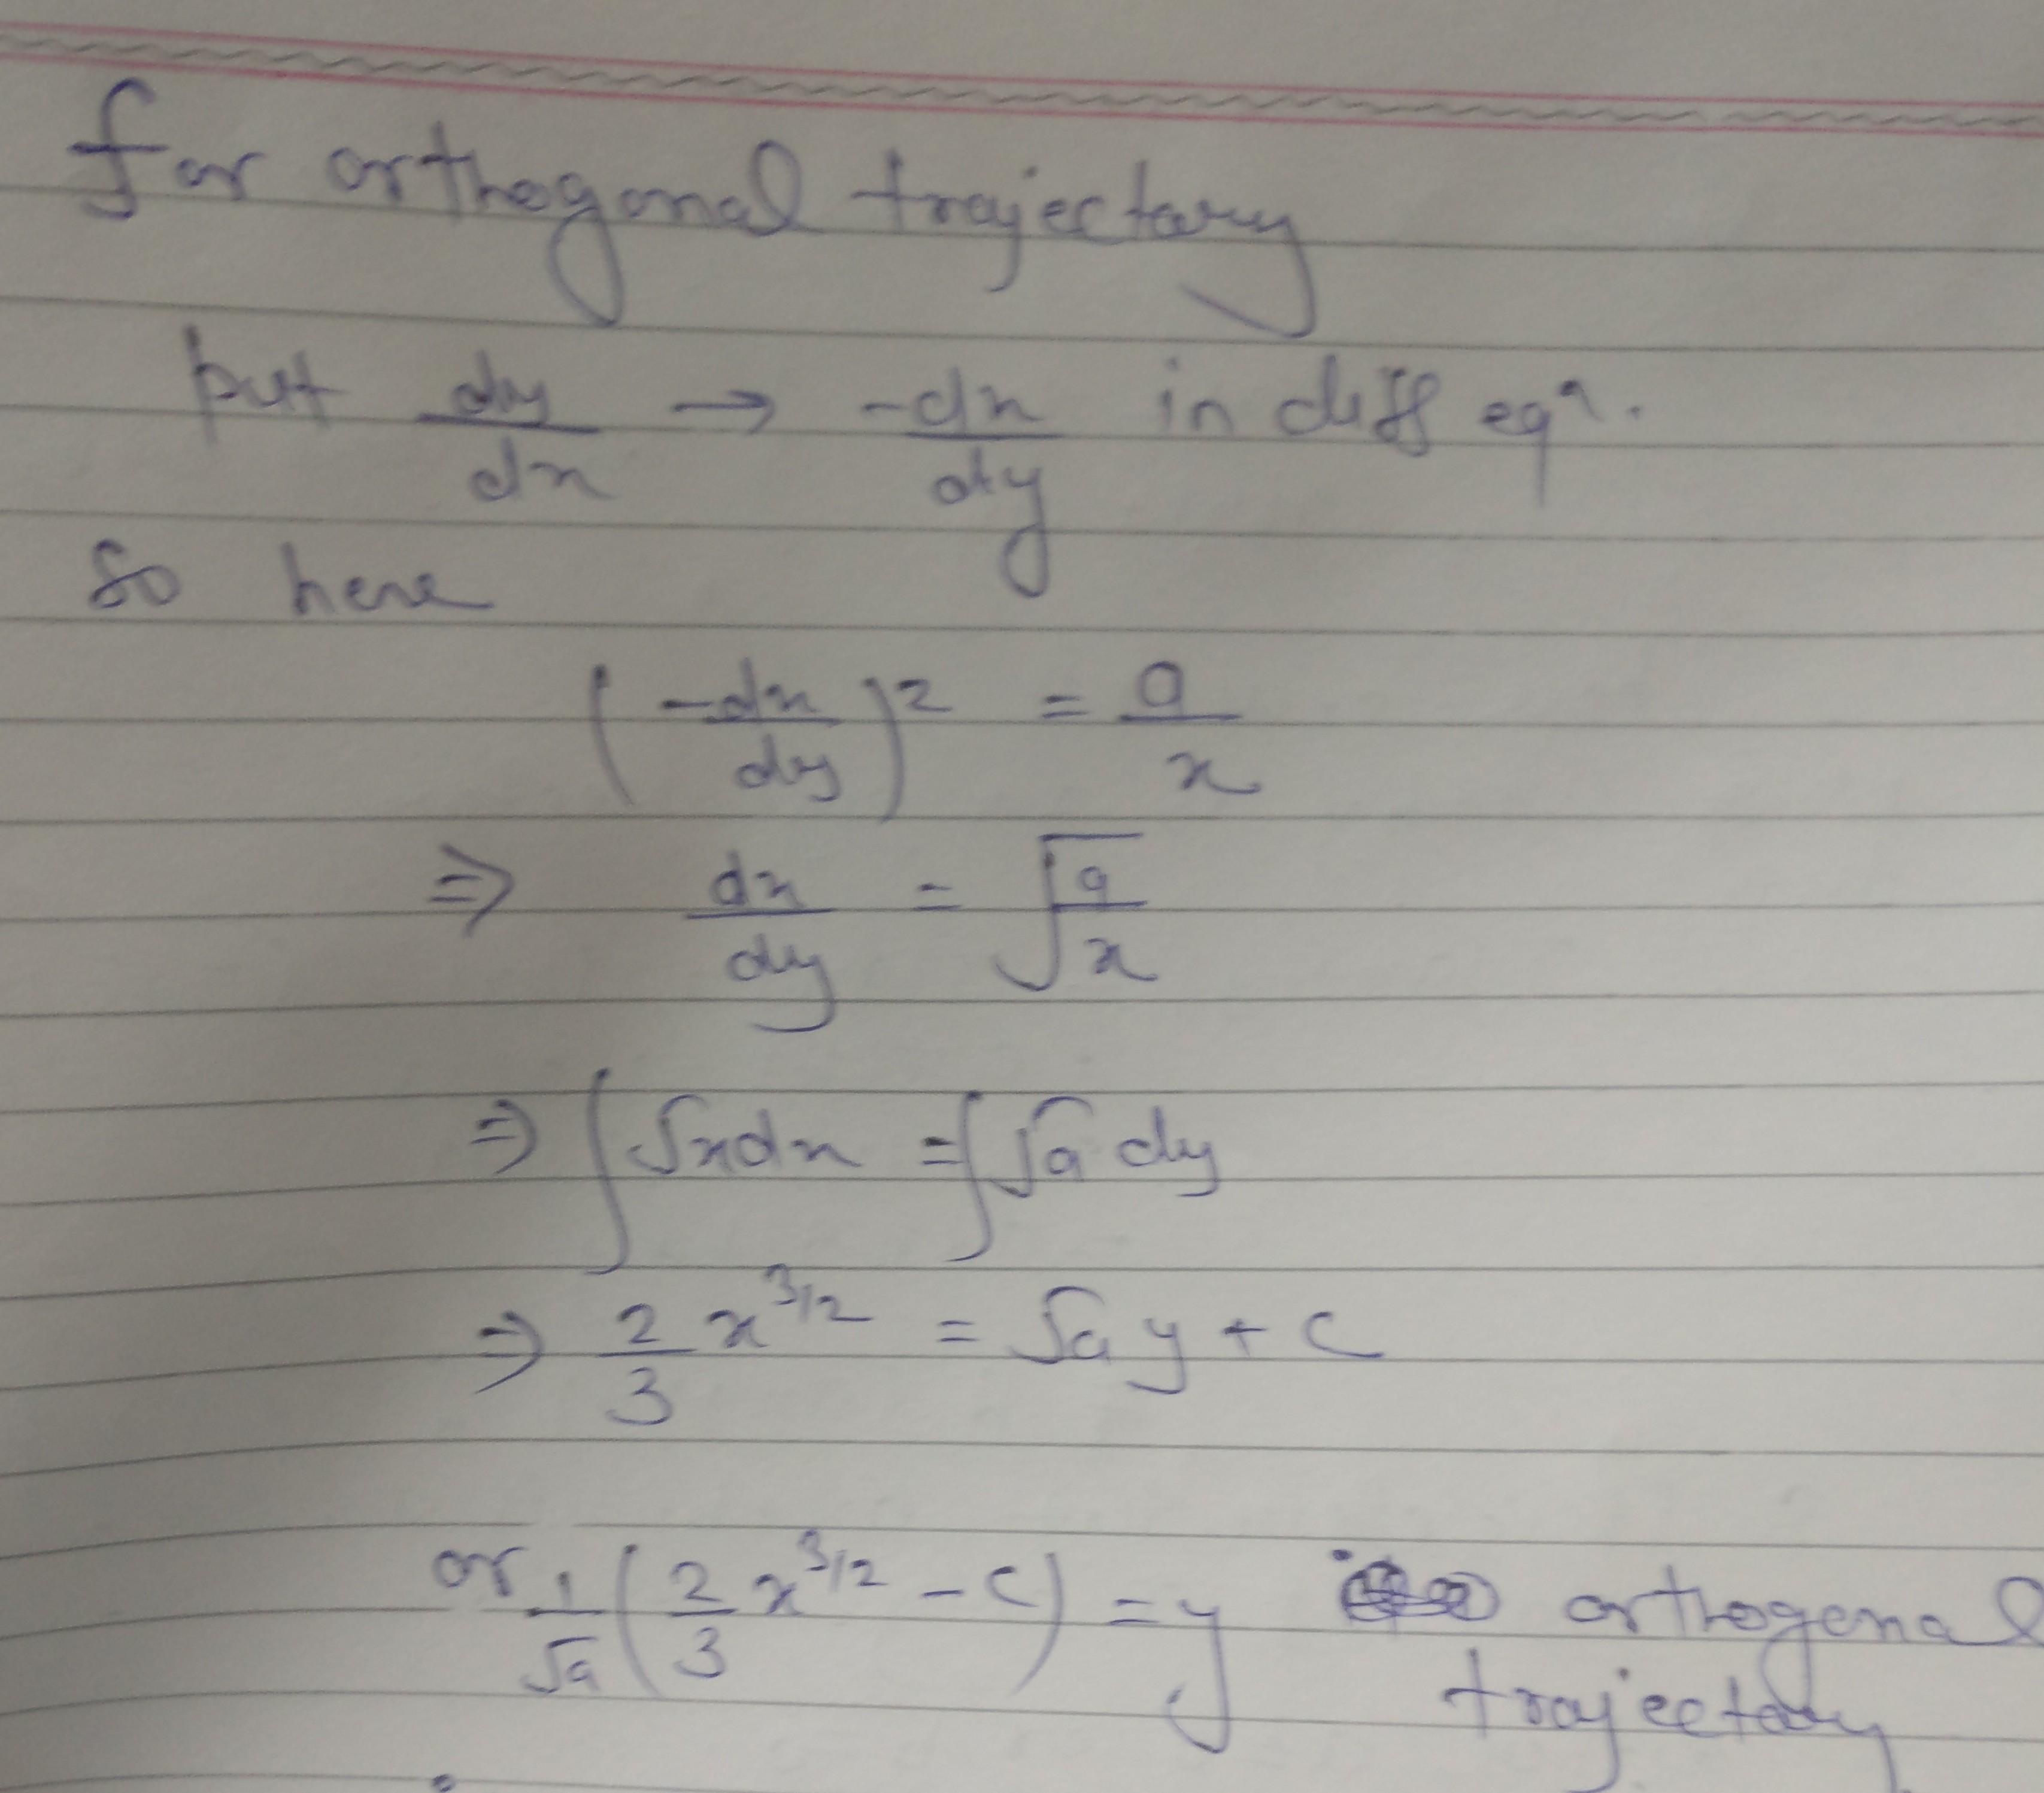 for orthogonal trajectory
put dy/dx → -dx/dy in diff eqⁿ.
So here
(-dx/dy)² = a/x
⇒ dx/dy = √(a/x)
⇒ ∫√x dx = ∫√a dy
⇒ 2/3 x^(3/2) = √a y + c
or 1/√a (2/3 x^(3/2) - c) = y orthogonal
trajectory